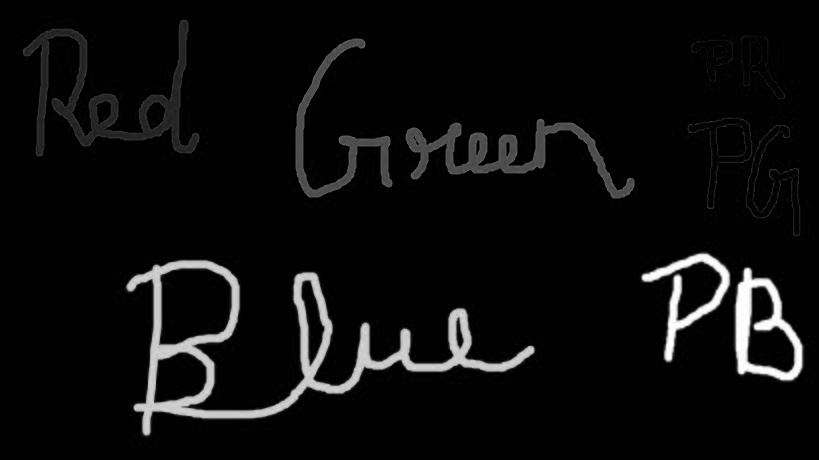 Red Green PR
PG
Blue PB